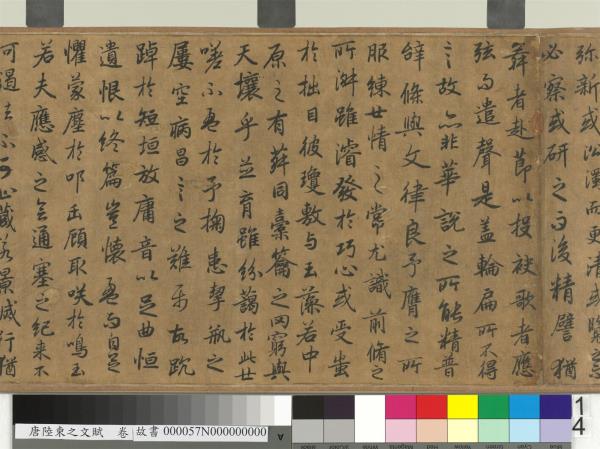 弥新或沿濁而更清或覽之而
必察或研之而後精譬猶
舞者赴節以投袂歌者應
弦而遣聲是蓋輪扁所不得
言故亦非華說之所能精普
辭條與文律良予膺之所
服練世情之常尤識前脩之
所淑雖濬發於巧心或受蚩
於拙目彼瓊敷與玉藻若中
原之有菽同橐籥之罔窮與
天壤乎並育雖紛藹於此世
嗟不盈於予掬患挈瓶之
屢空病昌言之難屬故踸
踔於短垣放庸音以足曲恒
遺恨以終篇豈懷盈而自足
懼蒙塵於叩缶顧取咲於鳴玉
若夫應感之會通塞之紀来不
可遏去不可止藏若景滅行猶
唐陸柬之文賦 卷 故書 000057N000000000
A
14